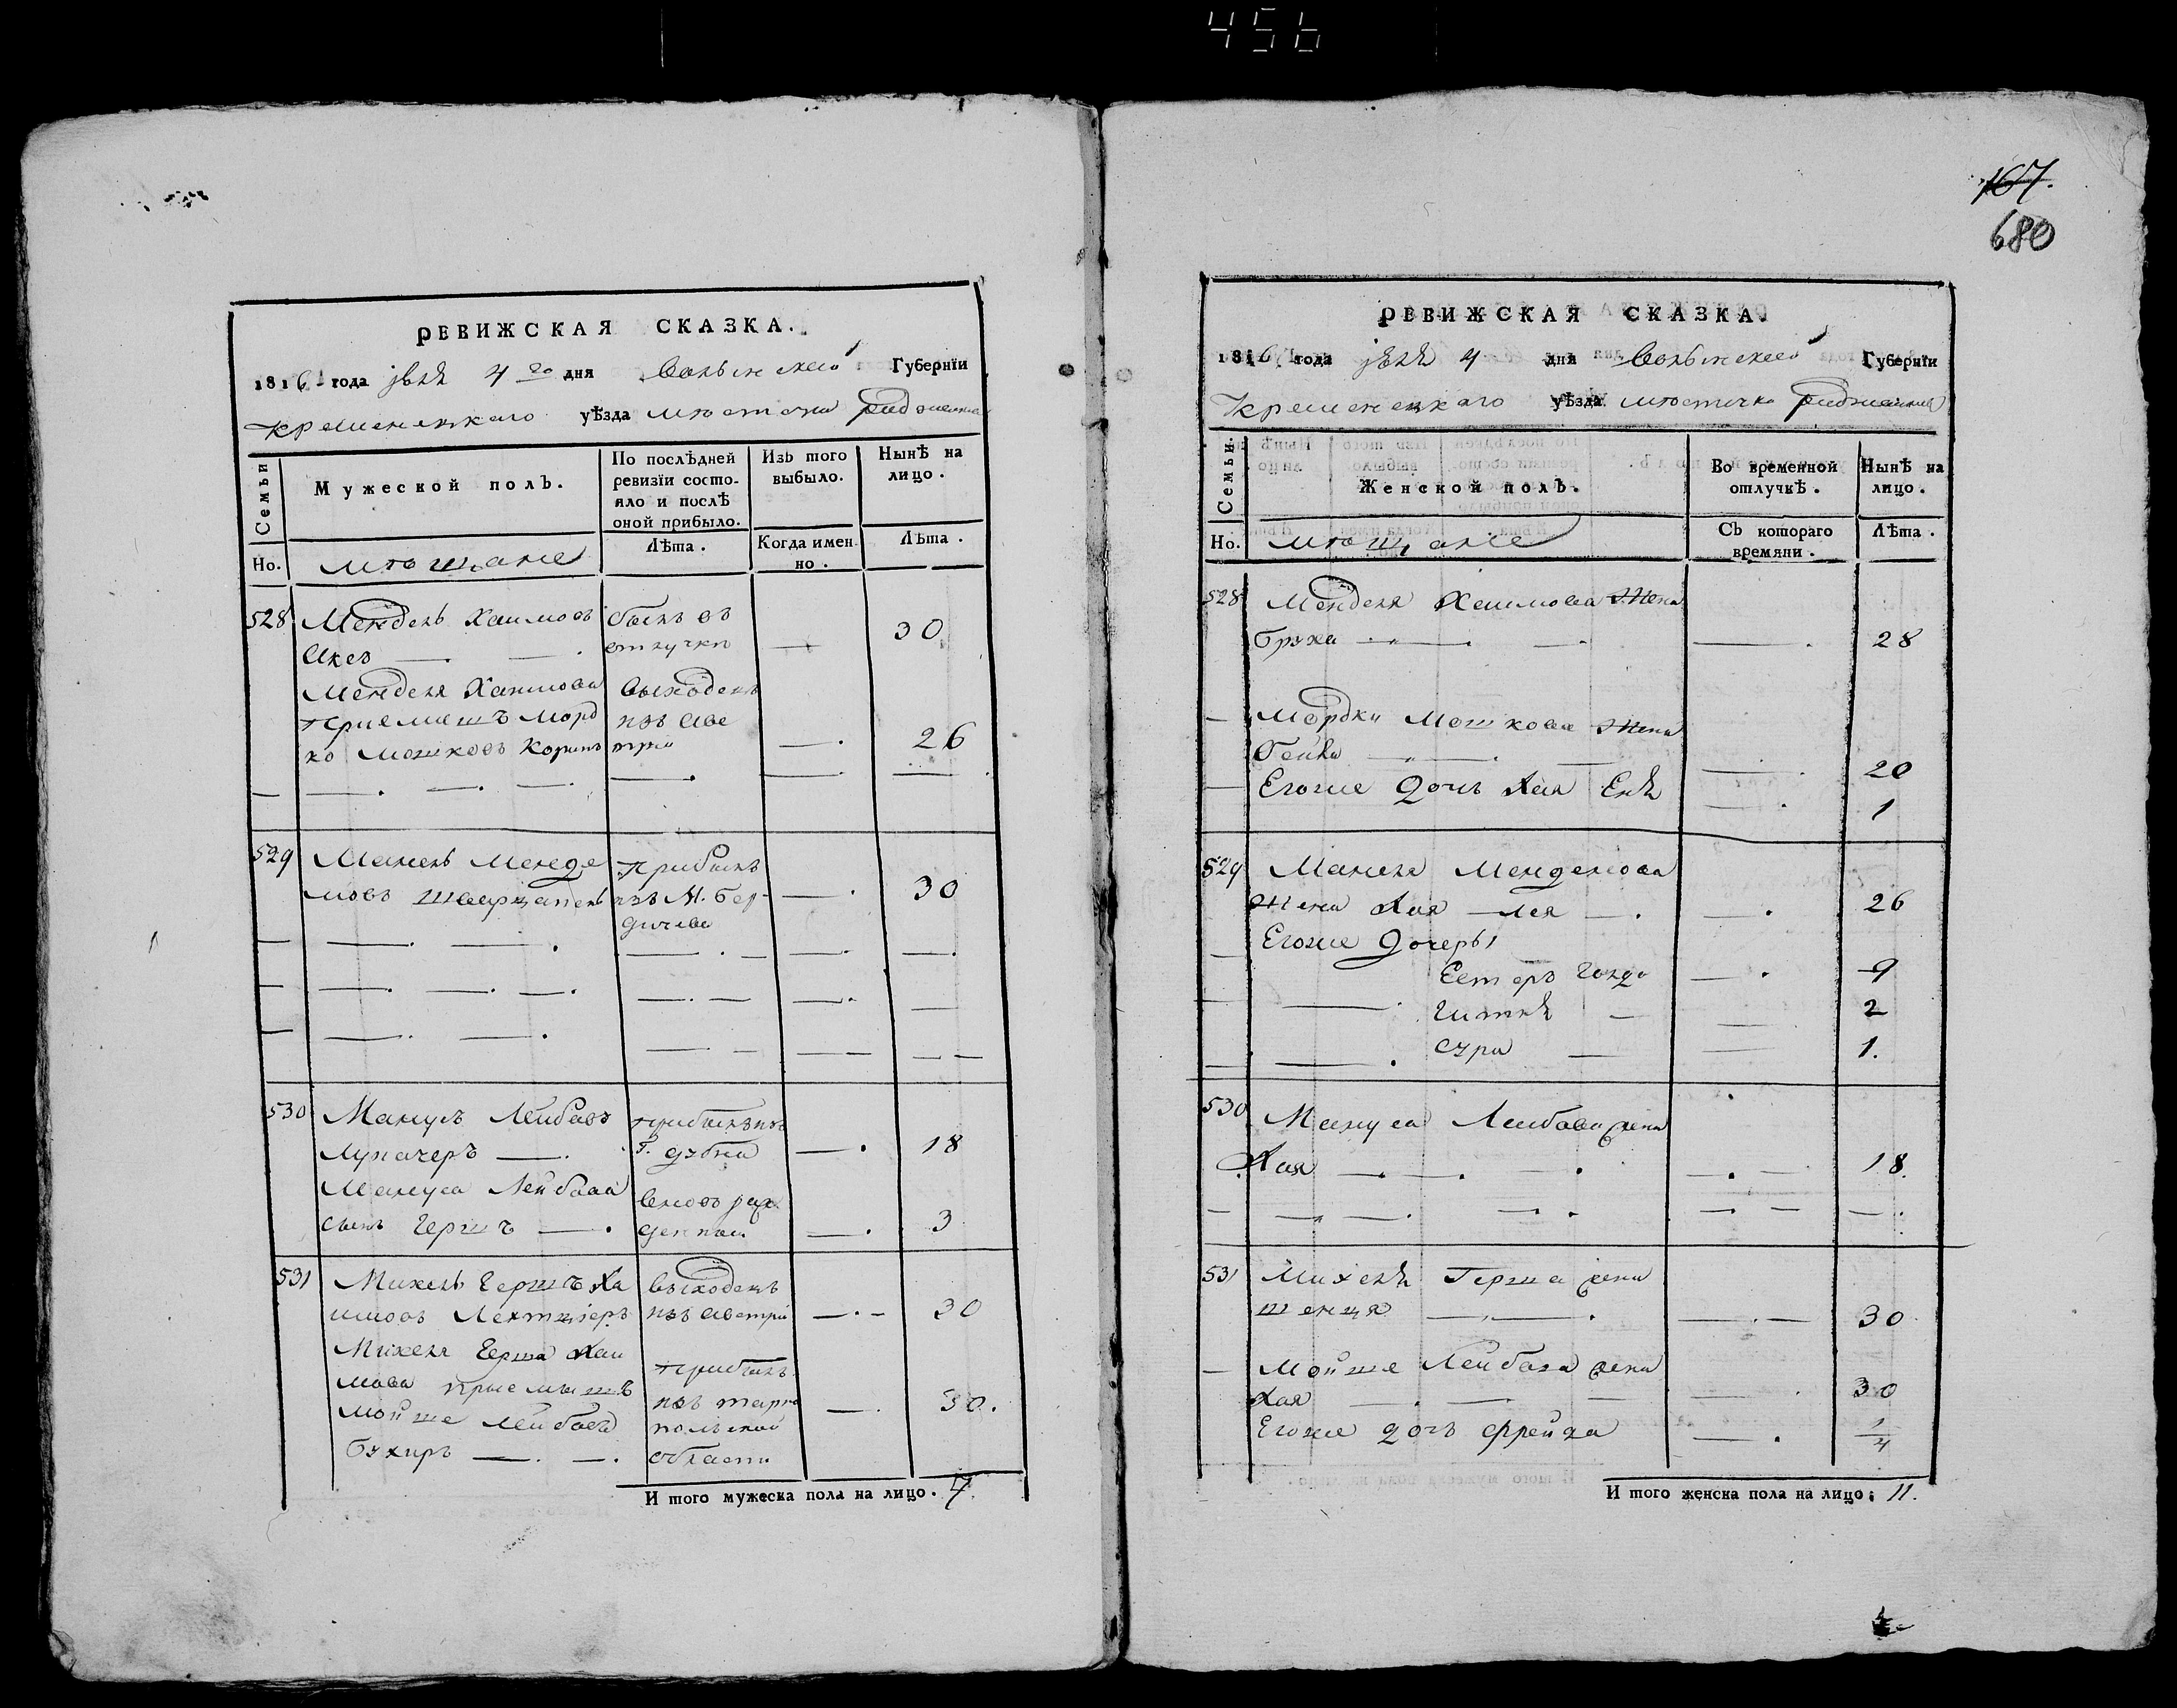 456
РЕВИЖСКАЯ СКАЗКА.
1816 года 4 го дня Волынской Губернїи
Кременецкаго уѣзда мѣстечка
Семьи
Мужеской полъ.
По послѣдней ревизїи состо-
яло и послѣ
оной прибыло.
Изъ того
выбыло.
Нынѣ на
лицо.
Но.
мѣщане
Лѣта.
Когда имен-
но.
Лѣта.
528 Мендель Хаимовъ былъ въ 30
отлучкѣ
Менделя Хаимова выходецъ
приемышъ Морд изъ Авс
ко Мошковъ трїи 26
529 Манель Менде прибылъ
ловъ изъ М. Бер- 30
дичева
530 Манусъ Лейбовъ прибылъ изъ
Г. Дубна 18
Мануса Лейбова вновь
сынъ Гершъ 3
531 Михель Гершъ Ха выходецъ
имовъ изъ Австрїи 30
Михеля Герша Хаи
мова приемышъ прибылъ
Мойше Лейбовъ изъ тарно 30.
польской
области
И того мужеска пола на лицо. 7.
167.
680
РЕВИЖСКАЯ СКАЗКА.
1816 года 4 дня Волынской Губернїи
Кременецкаго уѣзда мѣстечка
Семьи
Женской полъ.
Во временной
отлучкѣ.
Нынѣ на
лицо.
Но.
мѣщане
Съ котораго
времяни.
Лѣта.
528 Менделя Хаимова жена
Бруха 28
Мордки Мошкова жена
Бейла 20
Егоже дочь Хая 1
529 Манеля Менделова
жена Хая Лея 26
Егоже дочеры
Естеръ Голда 9
Гитля 2
Сура 1.
530 Мануса Лейбова жена
Хая 18.
531 Михеля Герша жена
Шенця 30
Мойше Лейбова жена
Хая 30
Егоже дочь Фрейда 1/4
И того женска пола на лицо: 11.